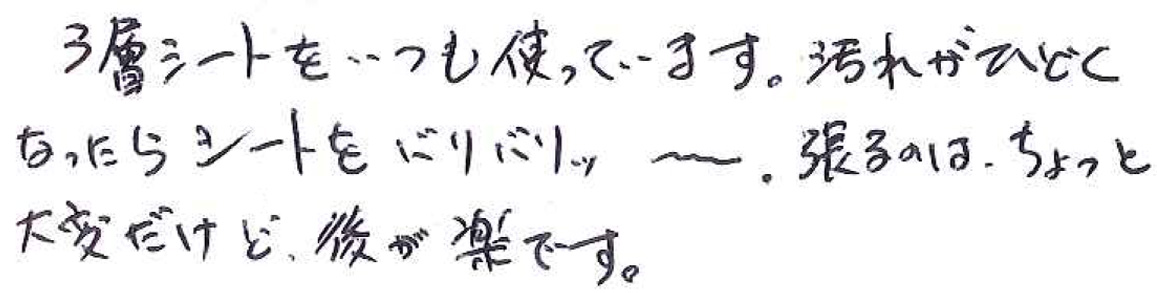 3層シートをいつも使っています。汚れがひどく
なったらシートをバリバリッ 〜。張るのは、ちょっと
大変だけど、後が楽です。